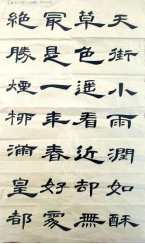 天街小雨潤如酥
草色遥看近却無
最是一年春好處
絕勝煙柳滿皇都